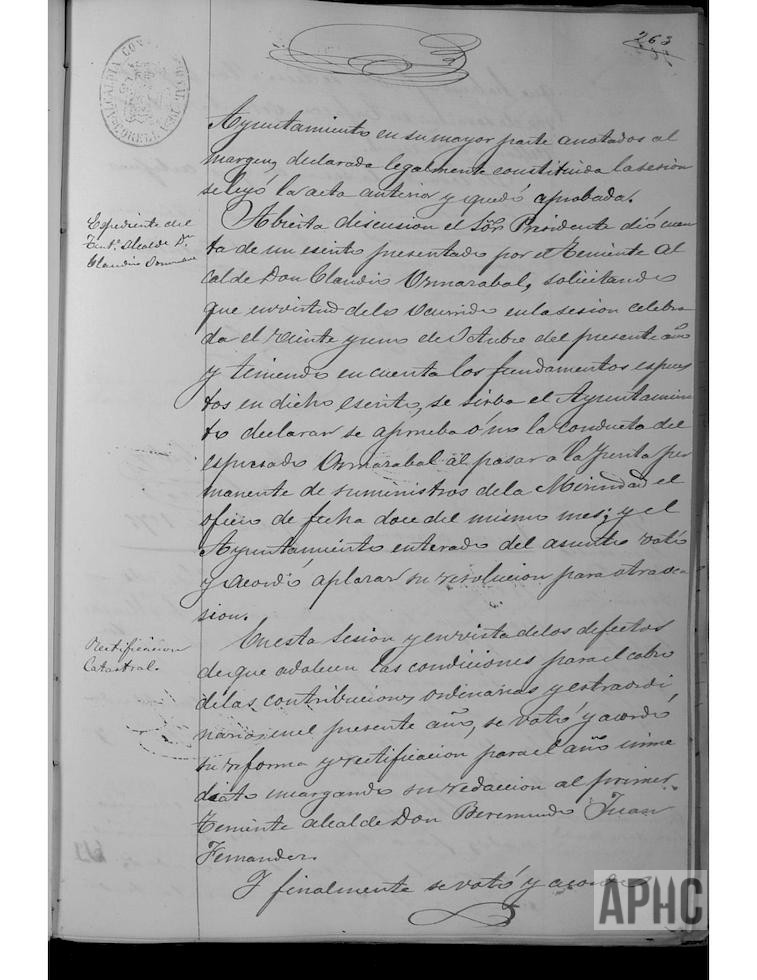 263
ALCALDIA CONS
Ayuntamiento en su mayor parte anotados al
margen, declarada legalmente constituida la sesion
se leyó la acta anterior y quedó aprobada.
Expediente del
Tente Alcalde Dn
Claudio
Abierta discusion el Sör Presidente dió cuen
ta de un escrito presentado por el Teniente Al
calde Don Claudio Ormazabal, solicitando
que en virtud de lo ocurrido en la sesion celebra
da el veinte y uno de Octubre del presente año
y teniendo en cuenta los fundamentos espues
tos en dicho escrito, se sirba el Ayuntamien
to declarar se aprueba ó no la conducta del
espresado Ormazabal al pasar a la Junta per
manente de suministros de la Merindad el
oficio de fecha doce del mismo mes; y el
Ayuntamiento enterado del asunto votó
y acordó aplazar su resolucion para otra oca
sion.
Rectificacion
Catastral.
En esta Sesion y en vista de los defectos
de que adolecen las condiciones para el cobro
de las contribuciones ordinarias y estraordi
narias en el presente año, se votó y acordó
su reforma y rectificacion para el año inme
diato encargando su redaccion al primer
Teniente alcalde Don Beremundo Juan
Fernandez.
Y finalmente se votó y acordó
APHC